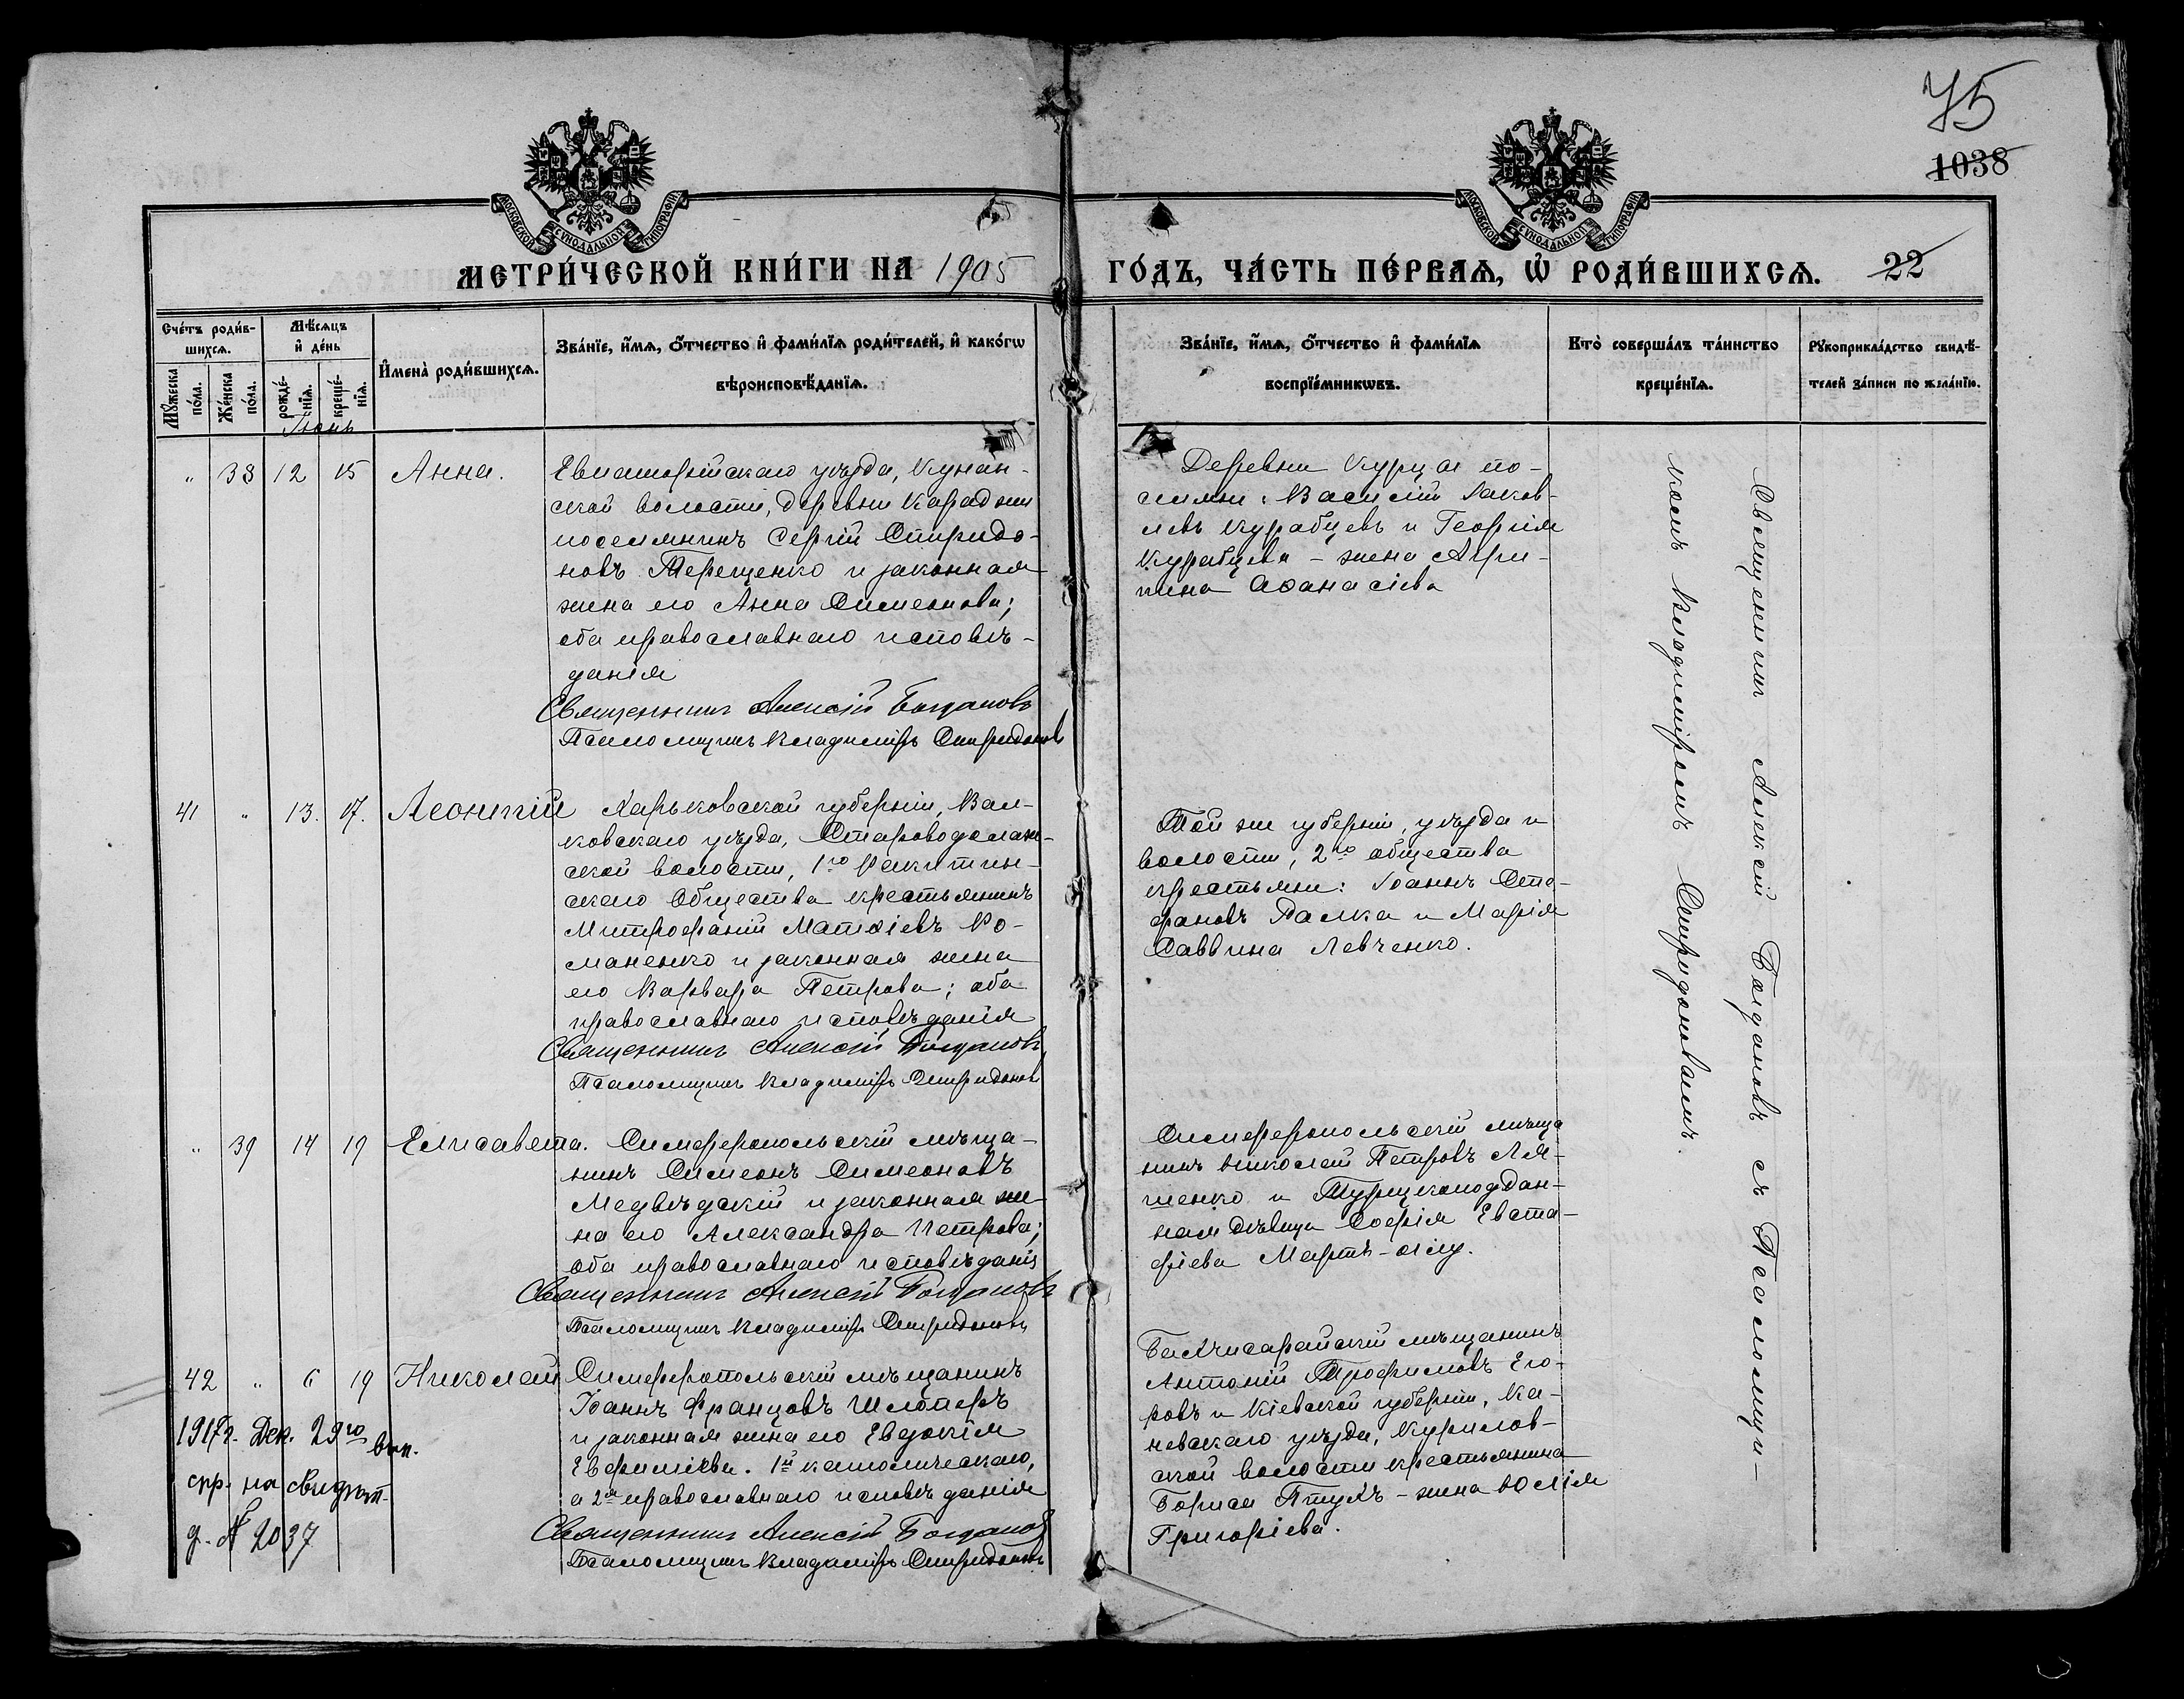 75
1038
МОСКОВСКОЙ СѴНОДАЛЬНОЙ ТИПОГРАФІИ
МОСКОВСКОЙ СѴНОДАЛЬНОЙ ТИПОГРАФІИ
МЕТРИ́ЧЕСКОЙ КНИ́ГИ НА 1905 ГО́ДЪ, ЧА́СТЬ ПЕ́РВАЯ, Ѡ҆ РОДИ́ВШИХСЯ. 22
Сче́тъ роди́в-
шихся.
Мꙋ́жеска по́ла.
Же́нска по́ла.
Мѣ́сяцъ и҆ де́нь
рожде́-нїя.
креще́-нїя.
И҆мена̀ роди́вшихся.
Зва́нїе, и҆́мя, ѻ҆́тчество и҆ фами́лїя роди́телей, и҆ како́гѡ
вѣроисповѣ́данїя.
Зва́нїе, и҆́мя, ѻ҆́тчество и҆ фами́лїя
воспрїе́мникѡвъ.
Кто̀ соверша́лъ та́инство
креще́нїя.
Рꙋкоприкла́дство свидѣ́-
телей за́писи по жела́нїю.
Іюнь
" 38 12 15 Анна.
Евпаторійскаго уѣзда, Кунан-
ской волости, деревни Караджи
поселянинъ Сергій Спиридо-
новъ Терещенко и законная
жена его Анна Симеонова;
оба православнаго исповѣ-
данія
Священникъ Алексій Богдановъ
Псаломщикъ Владиміръ Спиридоновъ
Деревни Курцы по-
селяне: Василій Іаков-
левъ Курабцевъ и Георгія
Курабцева - жена Агри-
пина Аѳанасіева
41 " 13. 17. Леонтій
Харьковской губерніи, Вал-
ковскаго уѣзда, Староводолаж-
ской волости, 1го Ракитин-
скаго Общества крестьянинъ
Митрофаній Матѳіевъ Ро-
маненко и законная жена
его Варвара Петрова; оба
православнаго исповѣданія
Священникъ Алексій Богдановъ
Псаломщикъ Владиміръ Спиридоновъ
Той же губерніи, уѣзда и
волости, 2го общества
крестьяне: Іоаннъ Сте-
фановъ Палка и Марія
Саввина Левченко.
" 39 14 19 Елисавета.
Симферопольскій мѣща-
нинъ Симеонъ Симеоновъ
Медвѣдскій и законная же-
на его Александра Петрова;
оба православнаго исповѣданія
Священникъ Алексій Богдановъ
Псаломщикъ Владиміръ Спиридоновъ
Симферопольскій мѣща
нинъ Николай Петровъ Ля-
шенко и Турецкоподдан-
ная дѣвица Софія Евста-
фіева Мартъ-оглу.
42 " 6 19 Николай
Симферопольскій мѣщанинъ
Іоаннъ Францовъ Шлотеръ
и законная жена его Евдокія
Евфиміева. 1й католическаго,
а 2я православнаго исповѣданія
Священникъ Алексій Богдановъ
Псаломщикъ Владиміръ Спиридоновъ
Бахчисарайскій мѣщанинъ
Антоній Трофимовъ Его-
ровъ и Кіевской губерніи, Ка-
невскаго уѣзда, Курилов-
ской волости крестьянина
Бориса Птухъ - жена Юлія
Григоріева.
1917г. Дек. 29го вып.
спр. на свидѣт.
д. № 2037
Священникъ Алексій Богдановъ съ Псаломщи-
комъ Владиміромъ Спиридоновымъ.